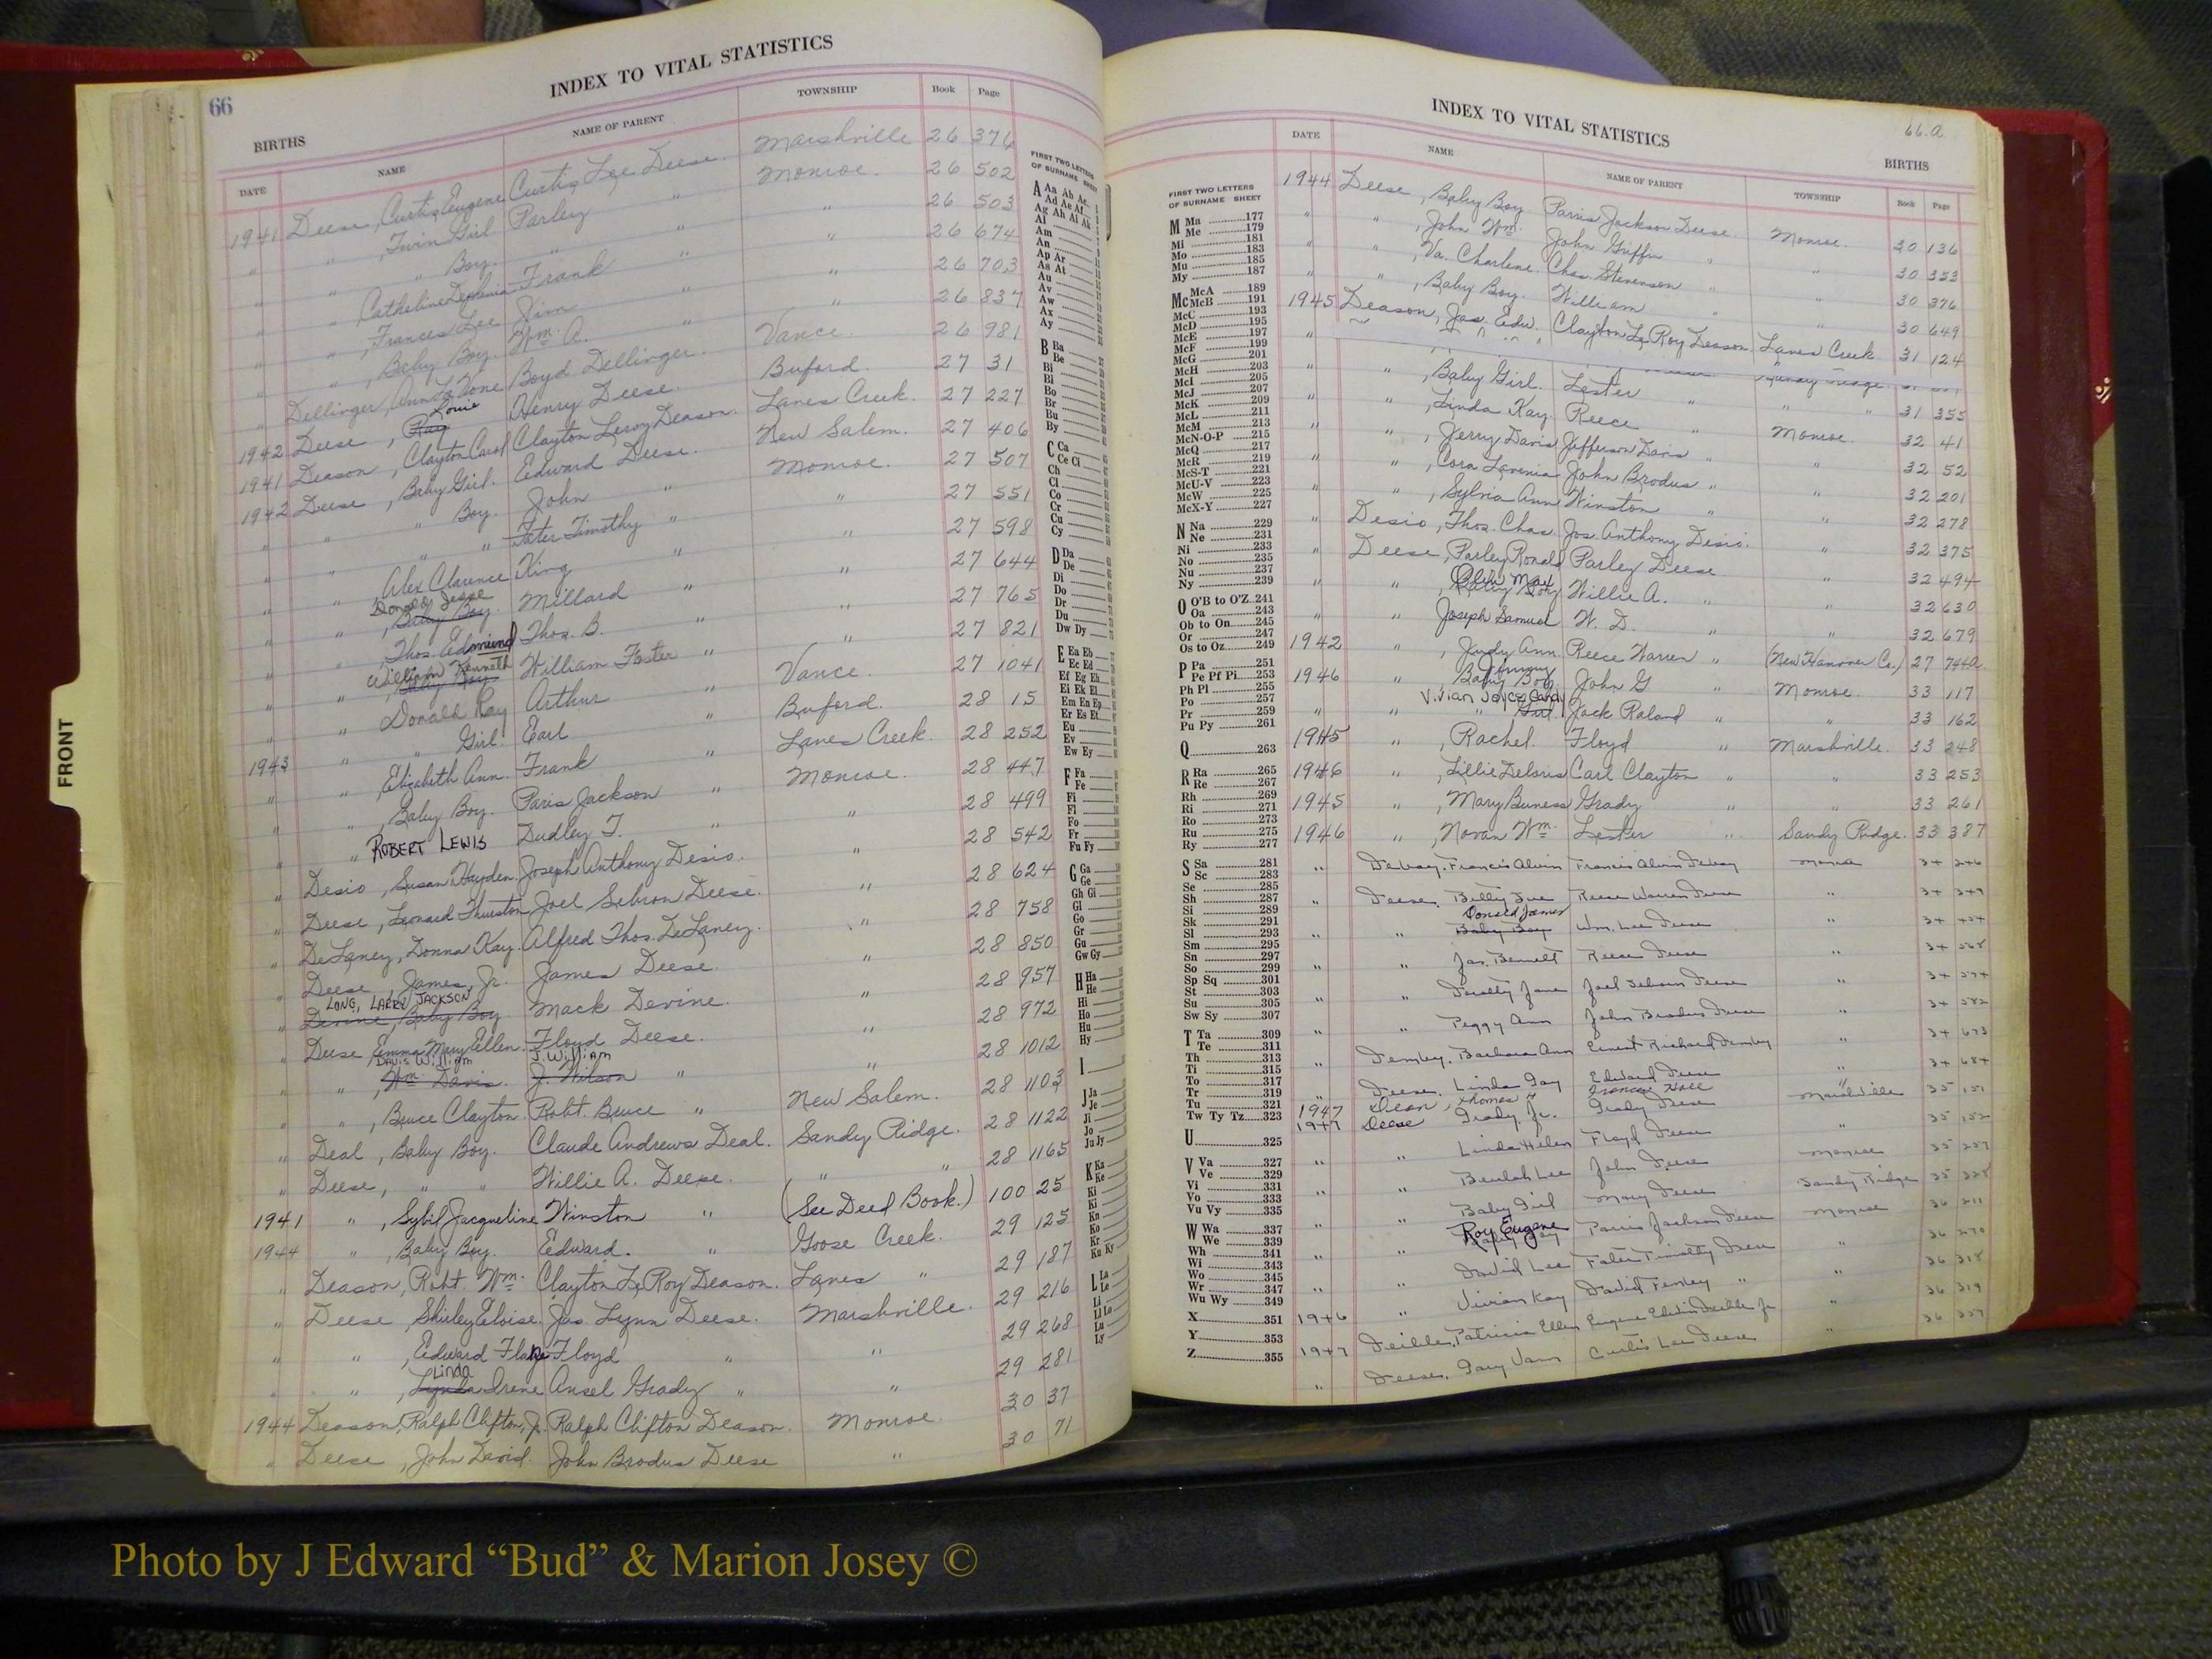 66
INDEX TO VITAL STATISTICS
BIRTHS
DATE NAME NAME OF PARENT TOWNSHIP Book Page
1941 Deese, Curtis Eugene Curtis Lee Deese. Marshville 26 376
" " , Twin Girl Parley " Monroe. 26 502
" " " Boy. " " " 26 503
" " Frank " " 26 674
" " , Frances Lee Jim " " 26 703
" " , Baby Boy. Wm. A. " " 26 837
" Dellinger, Boyd Dellinger. Vance. 26 981
1942 Deese, Ray Louie Henry Deese. Buford. 27 31
1941 Deason, Clayton Carol Clayton Leroy Deason. Lanes Creek. 27 227
1942 Deese, Baby Girl. Edward Deese. New Salem. 27 406
" " " Boy. John " Monroe. 27 507
" " " " Timothy " " 27 551
" " , Alex Clarence King " " 27 598
" " , Baby Boy. Donald Jesse Millard " " 27 644
" " , Thos. Edmund Thos. B. " " 27 765
" " , Baby Boy William Kenneth William Foster " " 27 821
" " Donald Ray Arthur " Vance. 27 1041
" " " Girl. Earl " Buford. 28 15
1943 " Elizabeth Ann. Frank Lanes Creek. 28 252
" " , Baby Boy. Paris Jackson " Monroe. 28 447
" " ROBERT LEWIS Dudley T. " " 28 499
" Desio, Susan Hayden. Joseph Anthony Desio. " 28 542
" Deese, Leonard Thurston Joel Sebron Deese. " 28 624
" DeLaney, Donna Kay. Alfred Thos. DeLaney. " 28 758
" Deese, James, Jr. James Deese. " 28 850
" Devine, Baby Boy LONG, LARRY JACKSON Mack Devine. " 28 957
" Deese, Emma Mary Ellen. Floyd Deese. " 28 972
" " , Wm. Davis. DAVIS William J. Wilson J. William " " 28 1012
" " , Bruce Clayton. Robt. Bruce " New Salem. 28 1103
" Deal, Baby Boy. Claude Andrews Deal. Sandy Ridge. 28 1122
" Deese, " " Willie A. Deese. " " 28 1165
1941 " , Sybil Jacqueline Winston " (See Deed Book.) 100 25
1944 " , Baby Boy. Edward. " Goose Creek. 29 125
" Deason, Robt. Wm. Clayton LeRoy Deason. Lanes " 29 187
" Deese, Shirley Eloise. Jas. Lynn Deese. Marshville. 29 216
" " , Edward Floyd " " 29 268
" " , Lynda Linda Irene Ansel Grady " " 29 281
1944 Deason, Ralph Clifton, Jr. Ralph Clifton Deason. Monroe. 30 37
" Deese, John David. John Brodus Deese " 30 71
FIRST TWO LETTERS
OF SURNAME SHEET
A Aa Ab Ac
Ad Ae Af
Ag Ah Ai Ak
Al
Am
An
Ap Ar
As At
Au
Av
Aw
Ax
Ay
B Ba
Be
Bi
Bl
Bo
Br
Bu
By
C Ca
Ce Ci
Ch
Cl
Co
Cr
Cu
Cy
D Da
De
Di
Do
Dr
Du
Dw Dy
E Ea Eb
Ec Ed
Ef Eg Eh
Ei Ek El
Em En Ep
Er Es Et
Eu
Ev
Ew Ey
F Fa
Fe
Fi
Fl
Fo
Fr
Fu Fy
G Ga
Ge
Gh Gi
Gl
Go
Gr
Gu
Gw Gy
H Ha
He
Hi
Ho
Hu
Hy
I
J Ja
Je
Ji
Jo
Ju Jy
K Ka
Ke
Ki
Kn
Ko
Kr
Ku Ky
L La
Le
Li
Ll Lo
Lu
Ly
FRONT
66.a
INDEX TO VITAL STATISTICS
BIRTHS
DATE NAME NAME OF PARENT TOWNSHIP Book Page
FIRST TWO LETTERS
OF SURNAME SHEET
M Ma 177
Me 179
Mi 181
Mo 183
Mu 185
My 187
Mc McA 189
McB 191
McC 193
McD 195
McE 197
McF 199
McG 201
McH 203
McI 205
McJ 207
McK 209
McL 211
McM 213
McN-O-P 215
McQ 217
McR 219
McS-T 221
McU-V 223
McW 225
McX-Y 227
N Na 229
Ne 231
Ni 233
No 235
Nu 237
Ny 239
O O'B to O'Z 241
Oa 243
Ob to On 245
Or 247
Os to Oz 249
P Pa 251
Pe Pf Pi 253
Ph Pl 255
Po 257
Pr 259
Pu Py 261
Q 263
R Ra 265
Re 267
Rh 269
Ri 271
Ro 273
Ru 275
Ry 277
S Sa 281
Sc 283
Se 285
Sh 287
Si 289
Sk 291
Sl 293
Sm 295
Sn 297
So 299
Sp Sq 301
St 303
Su 305
Sw Sy 307
T Ta 309
Te 311
Th 313
Ti 315
To 317
Tr 319
Tu 321
Tw Ty Tz 323
U 325
V Va 327
Ve 329
Vi 331
Vo 333
Vu Vy 335
W Wa 337
We 339
Wh 341
Wi 343
Wo 345
Wr 347
Wu Wy 349
X 351
Y 353
Z 355
1944 Deese, Baby Boy. Parris Jackson Deese. Monroe. 30 136
" " , John Wm. John Griffin " " 30 353
" " , Va. Charlene. Chas. Stevenson " " 30 376
" " , Baby Boy. William " " 30 649
1945 Deason, Jas. Edw. Clayton LeRoy Deason. Lanes Creek 31 124
" " , Baby Girl. Lester " " " 31 355
" " , Linda Kay. Reece " Monroe. 32 41
" " , Jerry Davis Jefferson Davis " " 32 52
" " , Cora Lavenia John Brodus " " 32 201
" " , Sylvia Ann Winston " " 32 278
" Desio, Thos. Chas. Jos. Anthony Desio. " 32 375
" Deese, Parley Ronald Parley Deese " 32 494
" " , Baby Boy Willie A. " " 32 630
" " Joseph Samuel W. D. " " 32 679
1942 " , Judy Ann. Reece Warren " (New Hanover Co.) 27 744a
1946 " Baby Boy. John G " Monroe. 33 117
" " Vivian Joyce Girl. Jack Roland " " 33 162
1945 " , Rachel. Floyd " Marshville. 33 248
1946 " , Lillie Deloris Carl Clayton " " 33 253
1945 " , Mary Buness Grady " " 33 261
1946 " , Novan Wm. Lester " Sandy Ridge. 33 387
" Devay, Francis Alvin Francis Alvin Devay Monroe 34 246
" Deese, Billy Sue Reece Warren Deese " 34 349
" " Baby Boy Donald James Wm. Lee Deese "
" " Jas. Bennett Reece Deese "
" " Dorothy Jane Joel Sebron Deese "
" " Peggy Ann John Brodus Deese "
" Demby, Barbara Ann Ernest Richard Demby " 34 673
" Deese, Linda Gay Edward Deese " 34 684
1947 Dean, Thomas
1947 Deese Grady Jr. Grady Deese Marshville 35 151
" " Linda Helen Floyd Deese " 35 152
" " Beulah Lee John Deese Monroe 35 257
" " Baby Girl Mary Deese Sandy Ridge 35 328
" " Roy Eugene Parris Jackson Deese Monroe 36 211
" " David Lee Timothy Deese " 36 270
" " Vivian Kay David Femley " " 36 318
1946 Deibler, Patricia Ellen Eugene Edwin Deibler Jr " 36 319
1947 Deese, Gary Vann Curtis Lee Deese " 36 337
Photo by J Edward “Bud” & Marion Josey ©